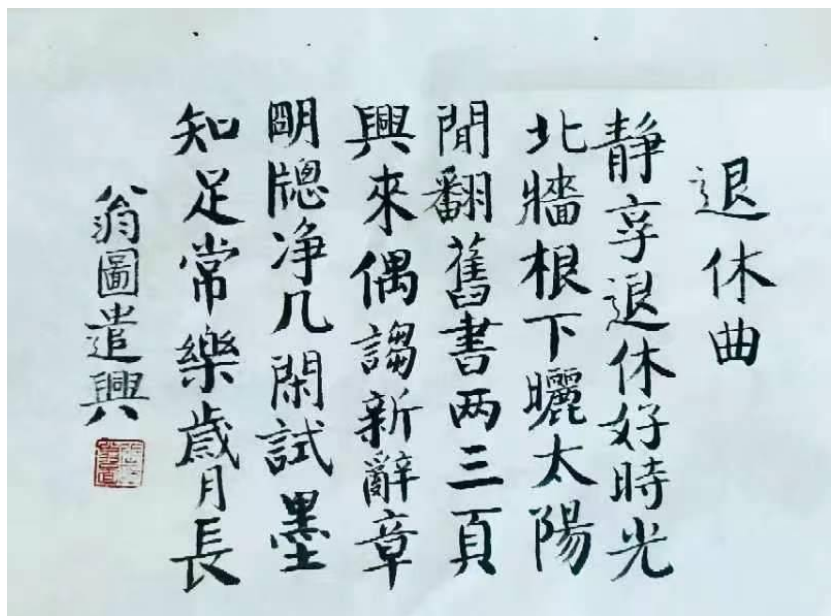 退休曲
靜享退休好時光
北牆根下曬太陽
閒翻舊書两三頁
興來偶謅新辭章
明牕净几閑試墨
知足常樂歲月長
翁圖遣興